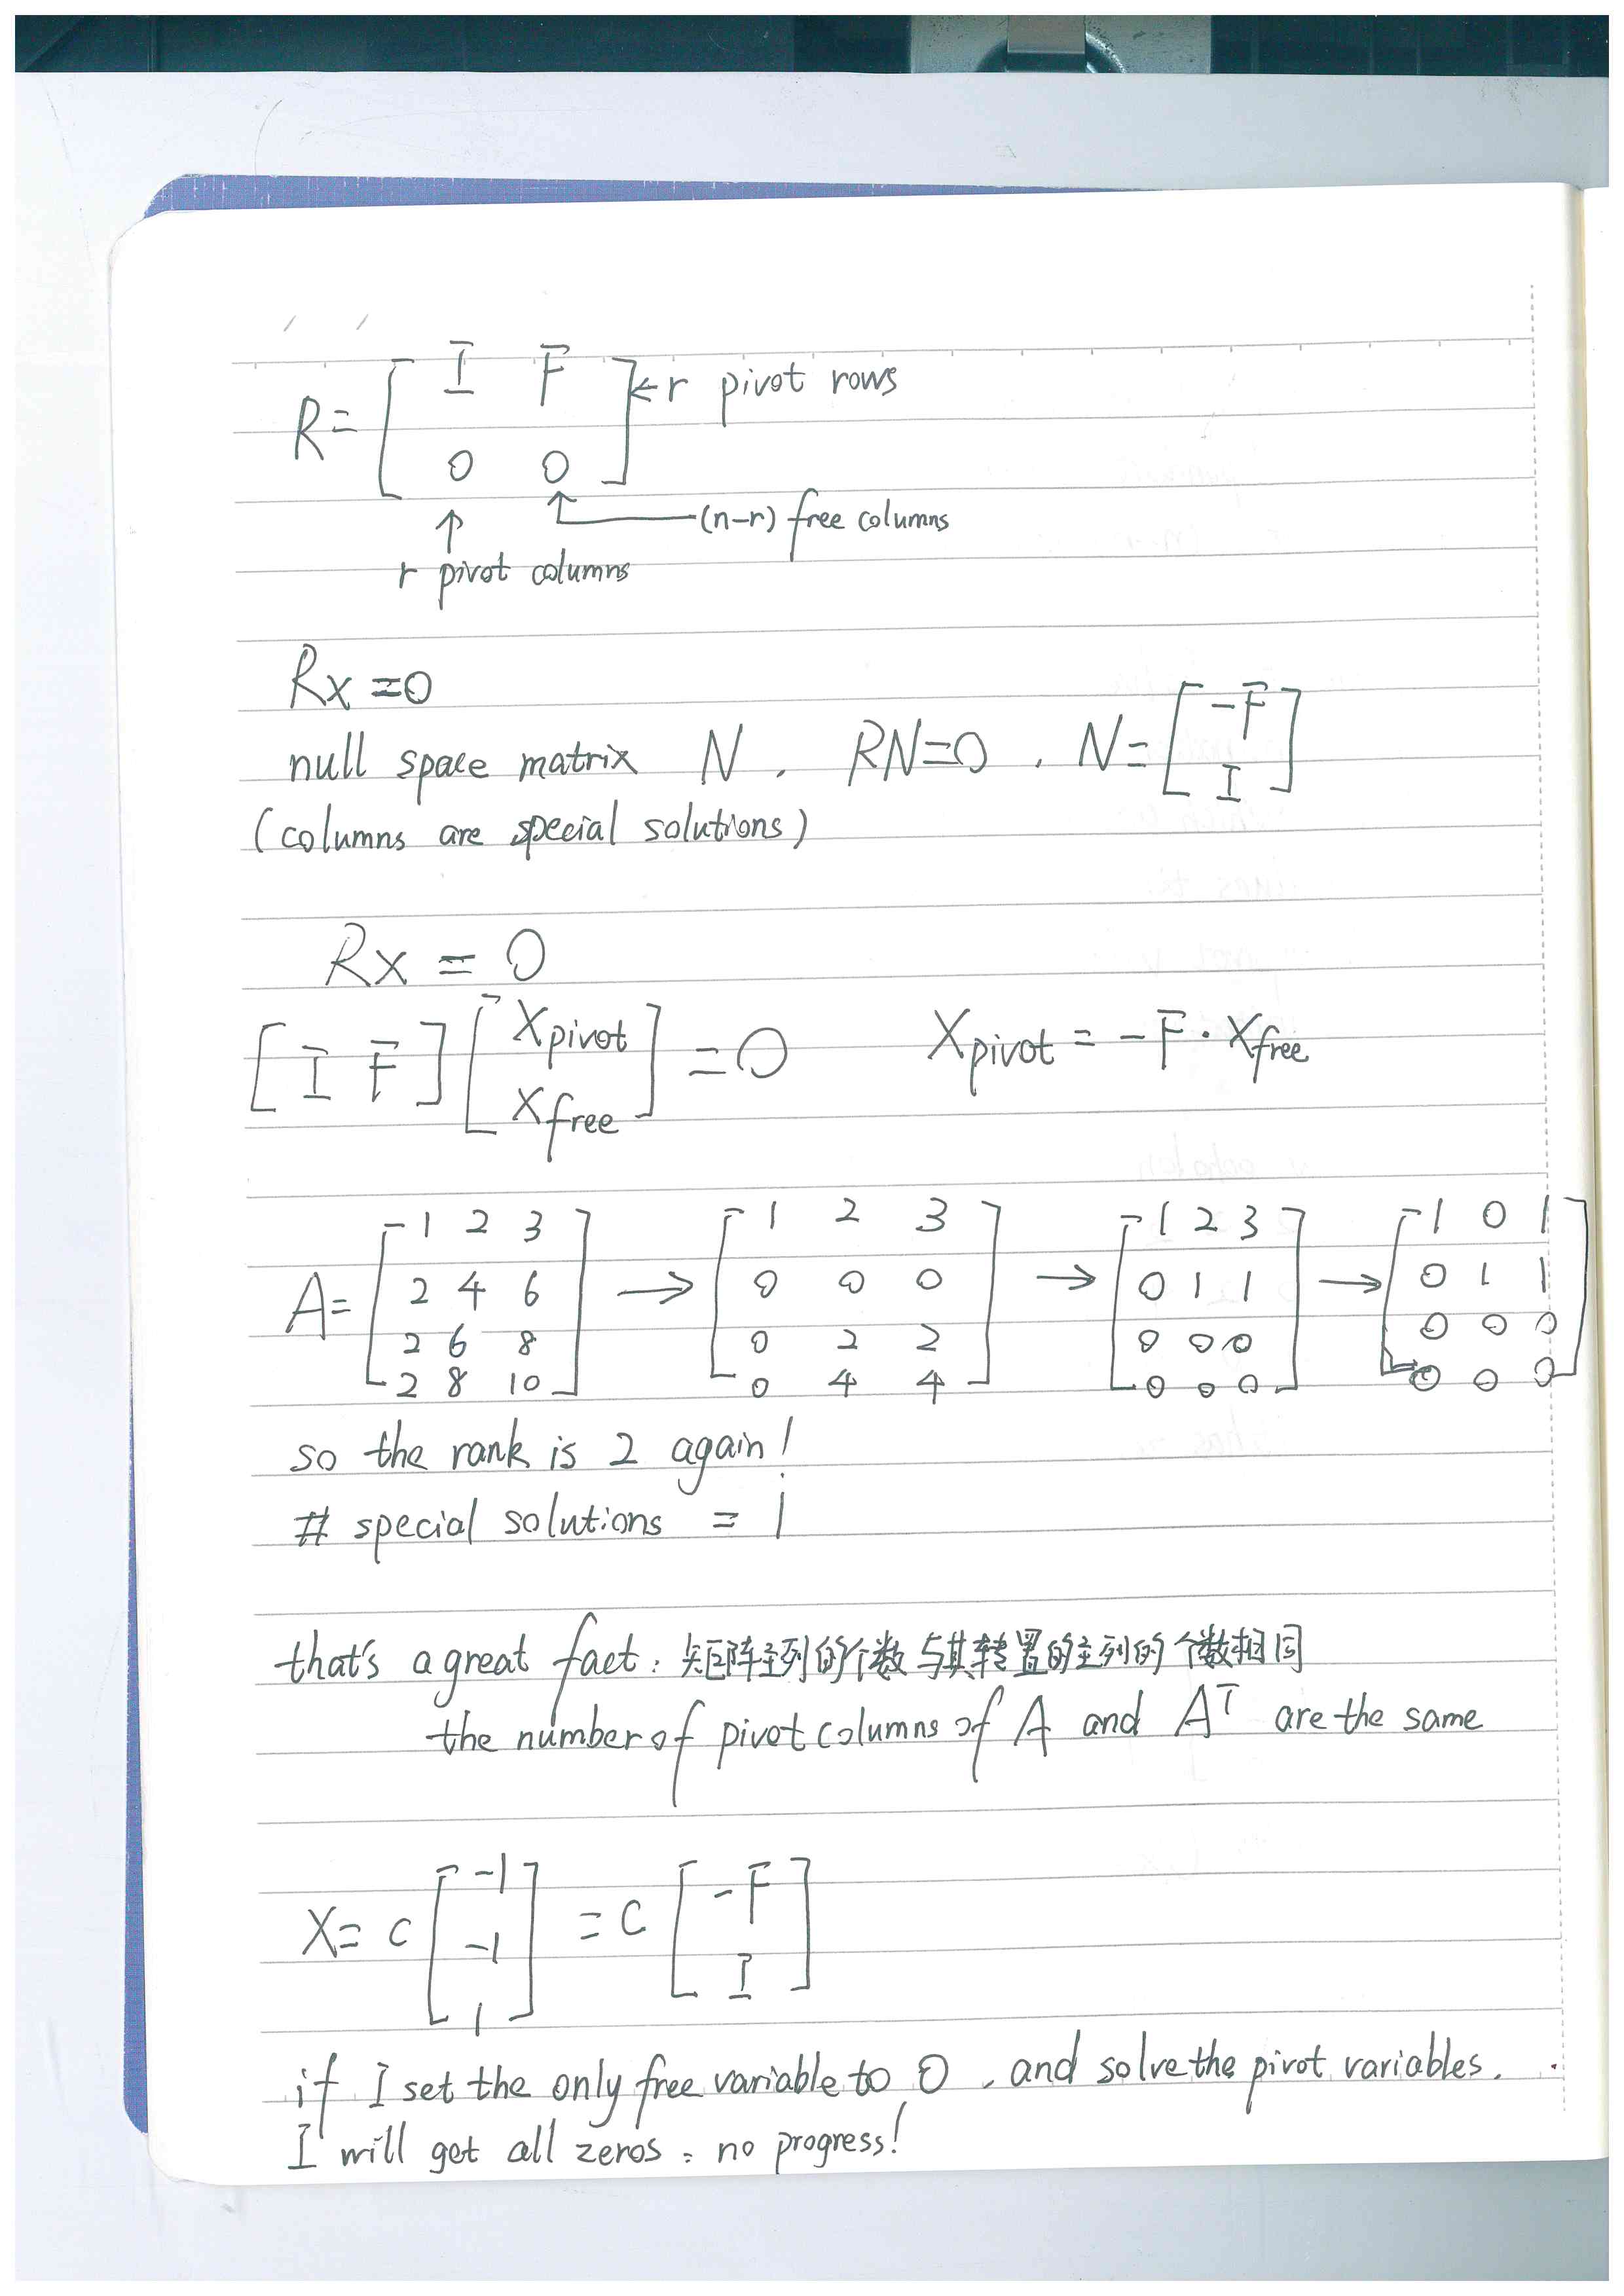 R = [ I F ] ← r pivot rows
[ 0 0 ]
↑ (n-r) free columns
↑ r pivot columns
Rx = 0
null space matrix N. RN=0. N= [ -F
I ]
(columns are special solutions)
Rx = 0
[ I F ] [ Xpivot
Xfree ] = 0 Xpivot = -F · Xfree
A= [ 1 2 3 → [ 1 2 3 → [ 1 2 3 → [ 1 0 1
2 4 6 0 0 0 0 1 1 0 1 1
2 6 8 0 2 2 0 0 0 0 0 0
2 8 10 ] 0 4 4 ] 0 0 0 ] 0 0 0 ]
so the rank is 2 again!
# special solutions = 1
that's a great fact: 矩阵主列的个数与其转置的主列的个数相同
the number of pivot columns of A and Aᵀ are the same
X= c [ -1
-1
1 ] = c [ -F
I ]
if I set the only free variable to 0, and solve the pivot variables.
I will get all zeros. no progress!